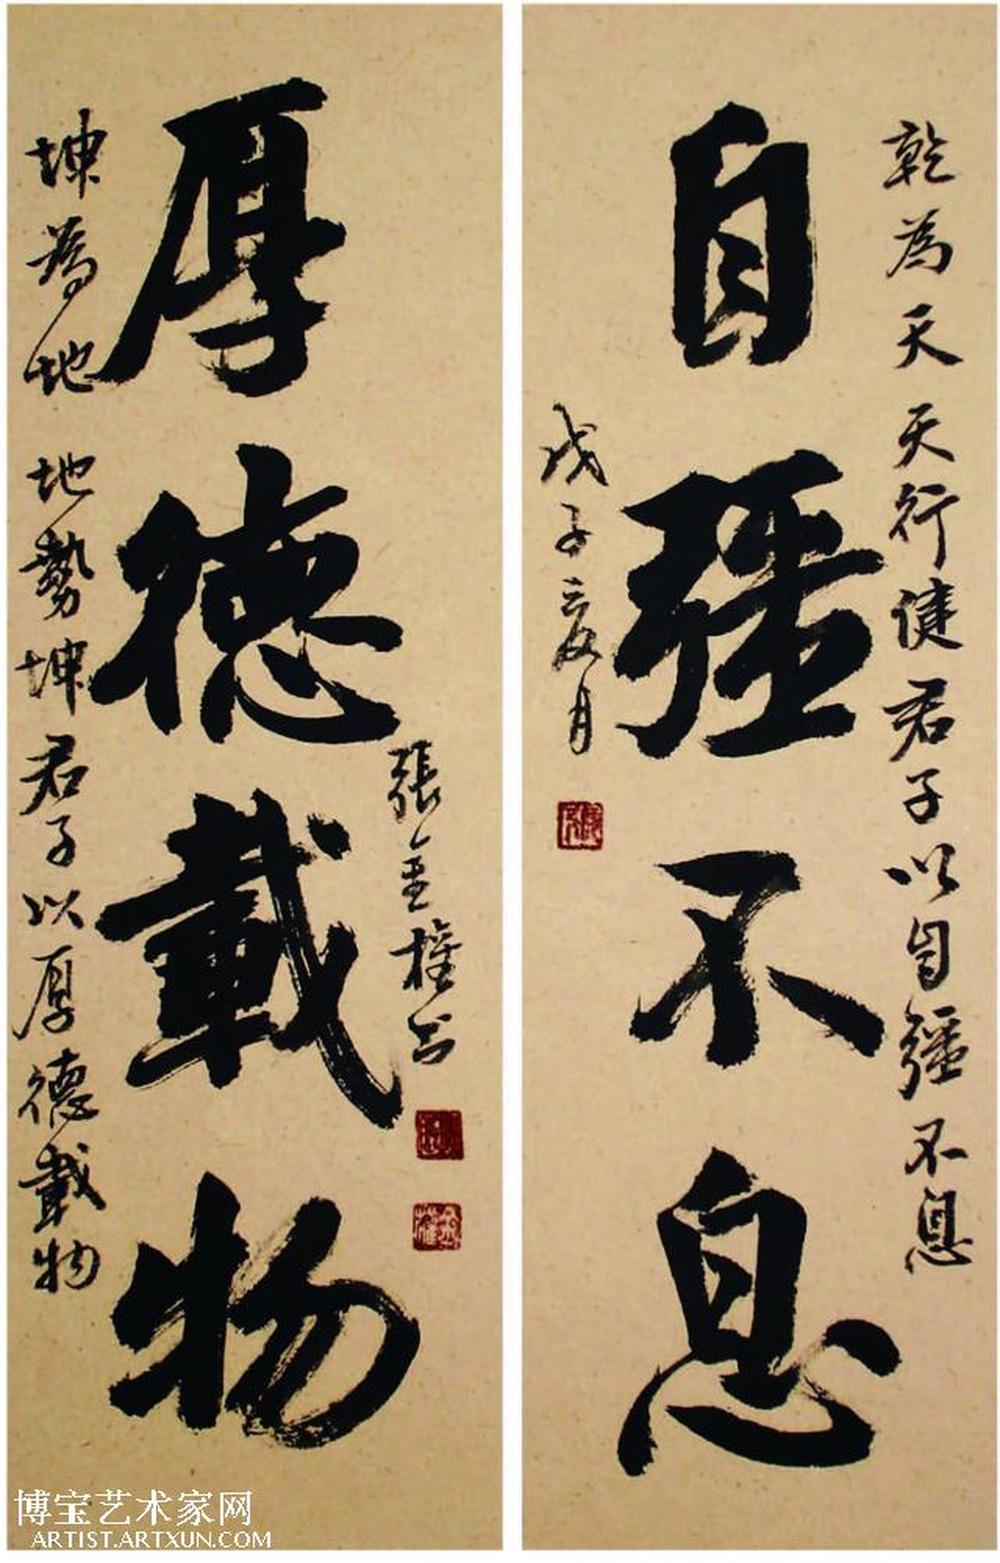 乾為天天行健君子以自彊不息
自彊不息
戊子夏月
張金權書
厚德載物
坤為地地勢坤君子以厚德載物
博宝艺术家网
ARTIST.ARTXUN.COM